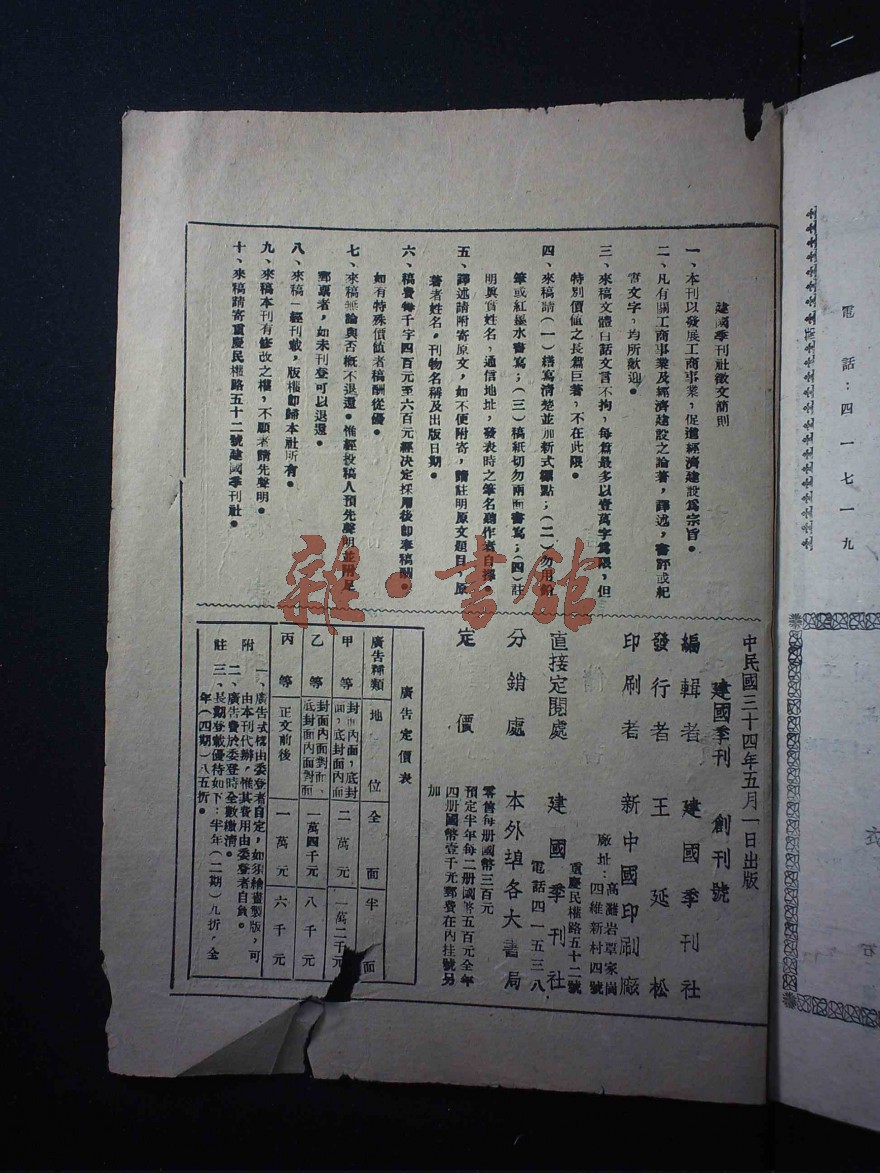 建國季刊社徵文簡則
一、本刊以發展工商事業，促進經濟建設爲宗旨。
二、凡有關工商事業及經濟建設之論著，譯述，書評或紀
實文字，均所歡迎。
三、來稿文體白話文言不拘，每篇最多以壹萬字爲限，但
特別價值之長篇巨著，不在此限。
四、來稿請（一）繕寫清楚並加新式標點；（二）勿用鉛
筆或紅墨水書寫；（三）稿紙切勿兩面書寫；（四）註
明眞實姓名，通信地址，發表時之筆名聽作者自擇
五、譯述請附寄原文，如不便附寄，請註明原文題目，原
著者姓名，刊物名稱及出版日期。
六、稿費每千字四百元至六百元經決定採用後卽奉稿酬。
如有特殊價值者稿酬從優。
七、來稿無論與否概不退還。惟經投稿人預先聲明並附足
郵票者，如未刊登可以退還。
八、來稿一經刊載，版權卽歸本社所有。
九、來稿本刊有修改之權，不願者請先聲明。
十、來稿請寄重慶民權路五十二號建國季刊社。
中民國三十四年五月一日出版
建國季刊　創刊號
編輯者　建國季刊社
發行者　王延松
印刷者　新中國印刷廠
廠址：高灘岩覃家崗
四維新村四號
直接定閱處　建國季刊社
重慶民權路五十二號
電話四一五三八
分銷處　本外埠各大書局
定價
零售每册國幣三百元
預定半年每二册國幣五百元全年
四册國幣壹千元郵費在內挂號另
加
廣告定價表
廣告種類　地位　全面　半面
甲等　封面內面，底封面，底封面內面　二萬元　一萬二千元
乙等　封面內面對面、底封面內面對面　一萬四千元　八千元
丙等　正文前後　一萬元　六千元
附註
一、廣告式樣由委登者自定，如須繪畫製版，可
由本刊代辦，惟其費用由委登者自負。
二、廣告費於委登時全數繳清。
三、長期登載優待如下：半年（二期）九折，全
年（四期）八五折。
電話：四一七一九
雜·書館